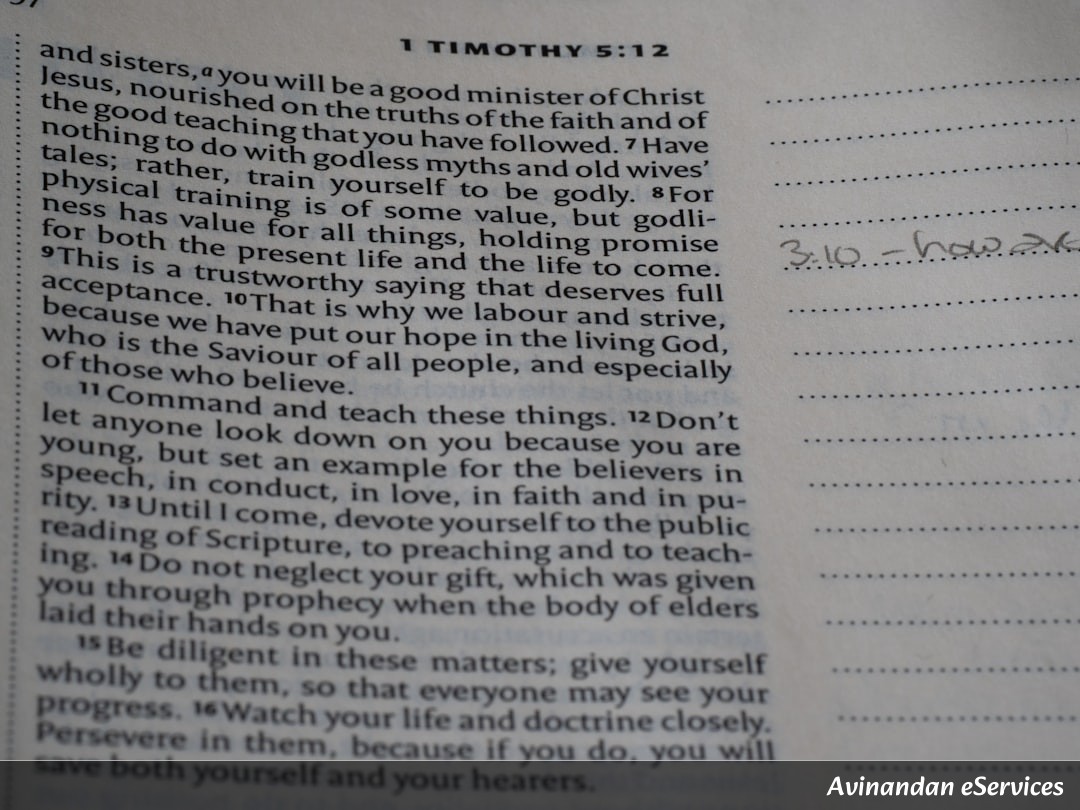 1 TIMOTHY 5:12
and sisters, a you will be a good minister of Christ
Jesus, nourished on the truths of the faith and of
the good teaching that you have followed. 7 Have
nothing to do with godless myths and old wives’
tales; rather, train yourself to be godly. 8 For
physical training is of some value, but godli-
ness has value for all things, holding promise
for both the present life and the life to come.
9 This is a trustworthy saying that deserves full
acceptance. 10 That is why we labour and strive,
because we have put our hope in the living God,
who is the Saviour of all people, and especially
of those who believe.
11 Command and teach these things. 12 Don’t
let anyone look down on you because you are
young, but set an example for the believers in
speech, in conduct, in love, in faith and in pu-
rity. 13 Until I come, devote yourself to the public
reading of Scripture, to preaching and to teach-
ing. 14 Do not neglect your gift, which was given
you through prophecy when the body of elders
laid their hands on you.
15 Be diligent in these matters; give yourself
wholly to them, so that everyone may see your
progress. 16 Watch your life and doctrine closely.
Persevere in them, because if you do, you will
save both yourself and your hearers.
3:10 – how
Avinandan eServices